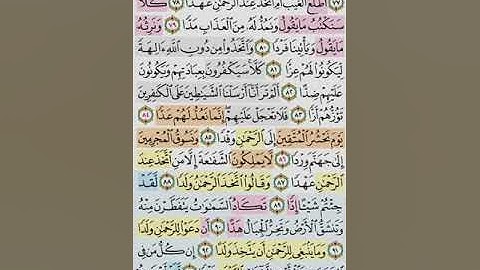 ۝٧٧ أَطَّلَعَ ٱلْغَيْبَ أَمِ ٱتَّخَذَ عِندَ ٱلرَّحْمَٰنِ عَهْدًا ۝٧٨ كَلَّا
سَنَكْتُبُ مَا يَقُولُ وَنَمُدُّ لَهُۥ مِنَ ٱلْعَذَابِ مَدًّا ۝٧٩ وَنَرِثُهُۥ
مَا يَقُولُ وَيَأْتِينَا فَرْدًا ۝٨٠ وَٱتَّخَذُوا۟ مِن دُونِ ٱللَّهِ ءَالِهَةً
لِّيَكُونُوا۟ لَهُمْ عِزًّا ۝٨١ كَلَّا سَيَكْفُرُونَ بِعِبَادَتِهِمْ وَيَكُونُونَ
عَلَيْهِمْ ضِدًّا ۝٨٢ أَلَمْ تَرَ أَنَّآ أَرْسَلْنَا ٱلشَّيَٰطِينَ عَلَى ٱلْكَٰفِرِينَ
تَؤُزُّهُمْ أَزًّا ۝٨٣ فَلَا تَعْجَلْ عَلَيْهِمْ إِنَّمَا نَعُدُّ لَهُمْ عَدًّا ۝٨٤
يَوْمَ نَحْشُرُ ٱلْمُتَّقِينَ إِلَى ٱلرَّحْمَٰنِ وَفْدًا ۝٨٥ وَنَسُوقُ ٱلْمُجْرِمِينَ
إِلَىٰ جَهَنَّمَ وِرْدًا ۝٨٦ لَّا يَمْلِكُونَ ٱلشَّفَٰعَةَ إِلَّا مَنِ ٱتَّخَذَ عِندَ
ٱلرَّحْمَٰنِ عَهْدًا ۝٨٧ وَقَالُوا۟ ٱتَّخَذَ ٱلرَّحْمَٰنُ وَلَدًا ۝٨٨ لَّقَدْ
جِئْتُمْ شَيْـًٔا إِدًّا ۝٨٩ تَكَادُ ٱلسَّمَٰوَٰتُ يَتَفَطَّرْنَ مِنْهُ
وَتَنشَقُّ ٱلْأَرْضُ وَتَخِرُّ ٱلْجِبَالُ هَدًّا ۝٩٠ أَن دَعَوْا۟ لِلرَّحْمَٰنِ وَلَدًا
۝٩١ وَمَا يَنۢبَغِى لِلرَّحْمَٰنِ أَن يَتَّخِذَ وَلَدًا ۝٩٢ إِن كُلُّ مَن فِى